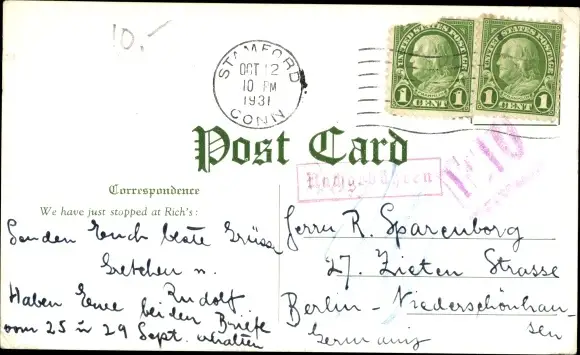 10.-
STAMFORD
OCT 12
10 PM
1931
CONN
UNITED STATES POSTAGE
FRANKLIN
1 CENT 1
UNITED STATES POSTAGE
FRANKLIN
1 CENT 1
Post Card
Nachgebühren
10
Correspondence
We have just stopped at Rich's:
Senden Euch beste Grüsse
Gretchen u.
Rudolf
Haben Eure beiden Briefe
vom 25 u 29 Sept. erhalten
Herrn R. Sparenborg
27. Zieten Strasse
Berlin - Niederschönhau-
sen
Germany